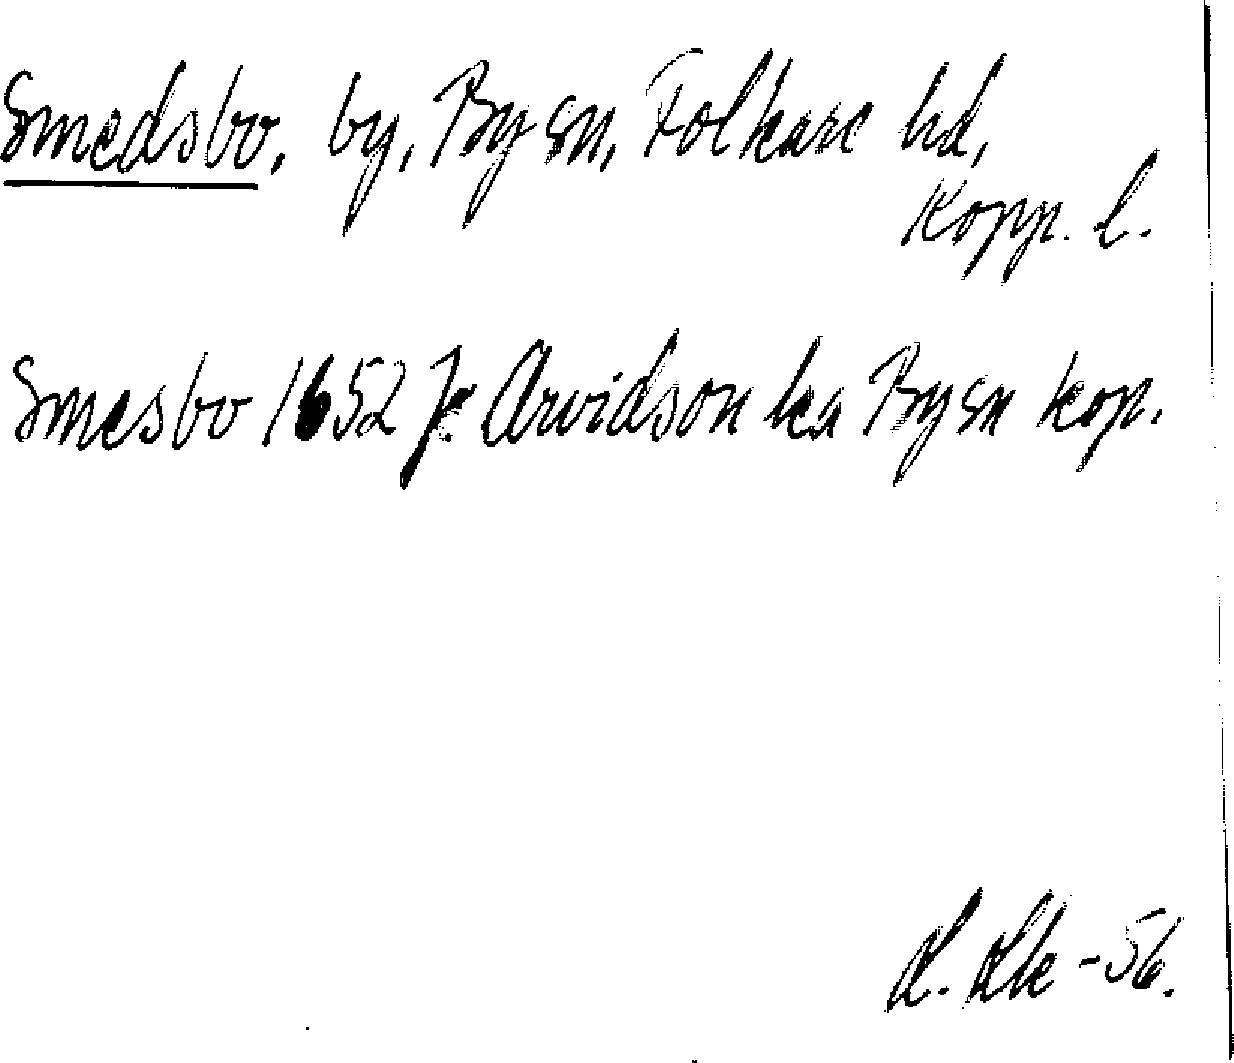 Smedsbo, by, By sn, Folkare hd,
Kopp. l.
Smesbo 1652 J. Arvidson ka By sn kop.
-56.